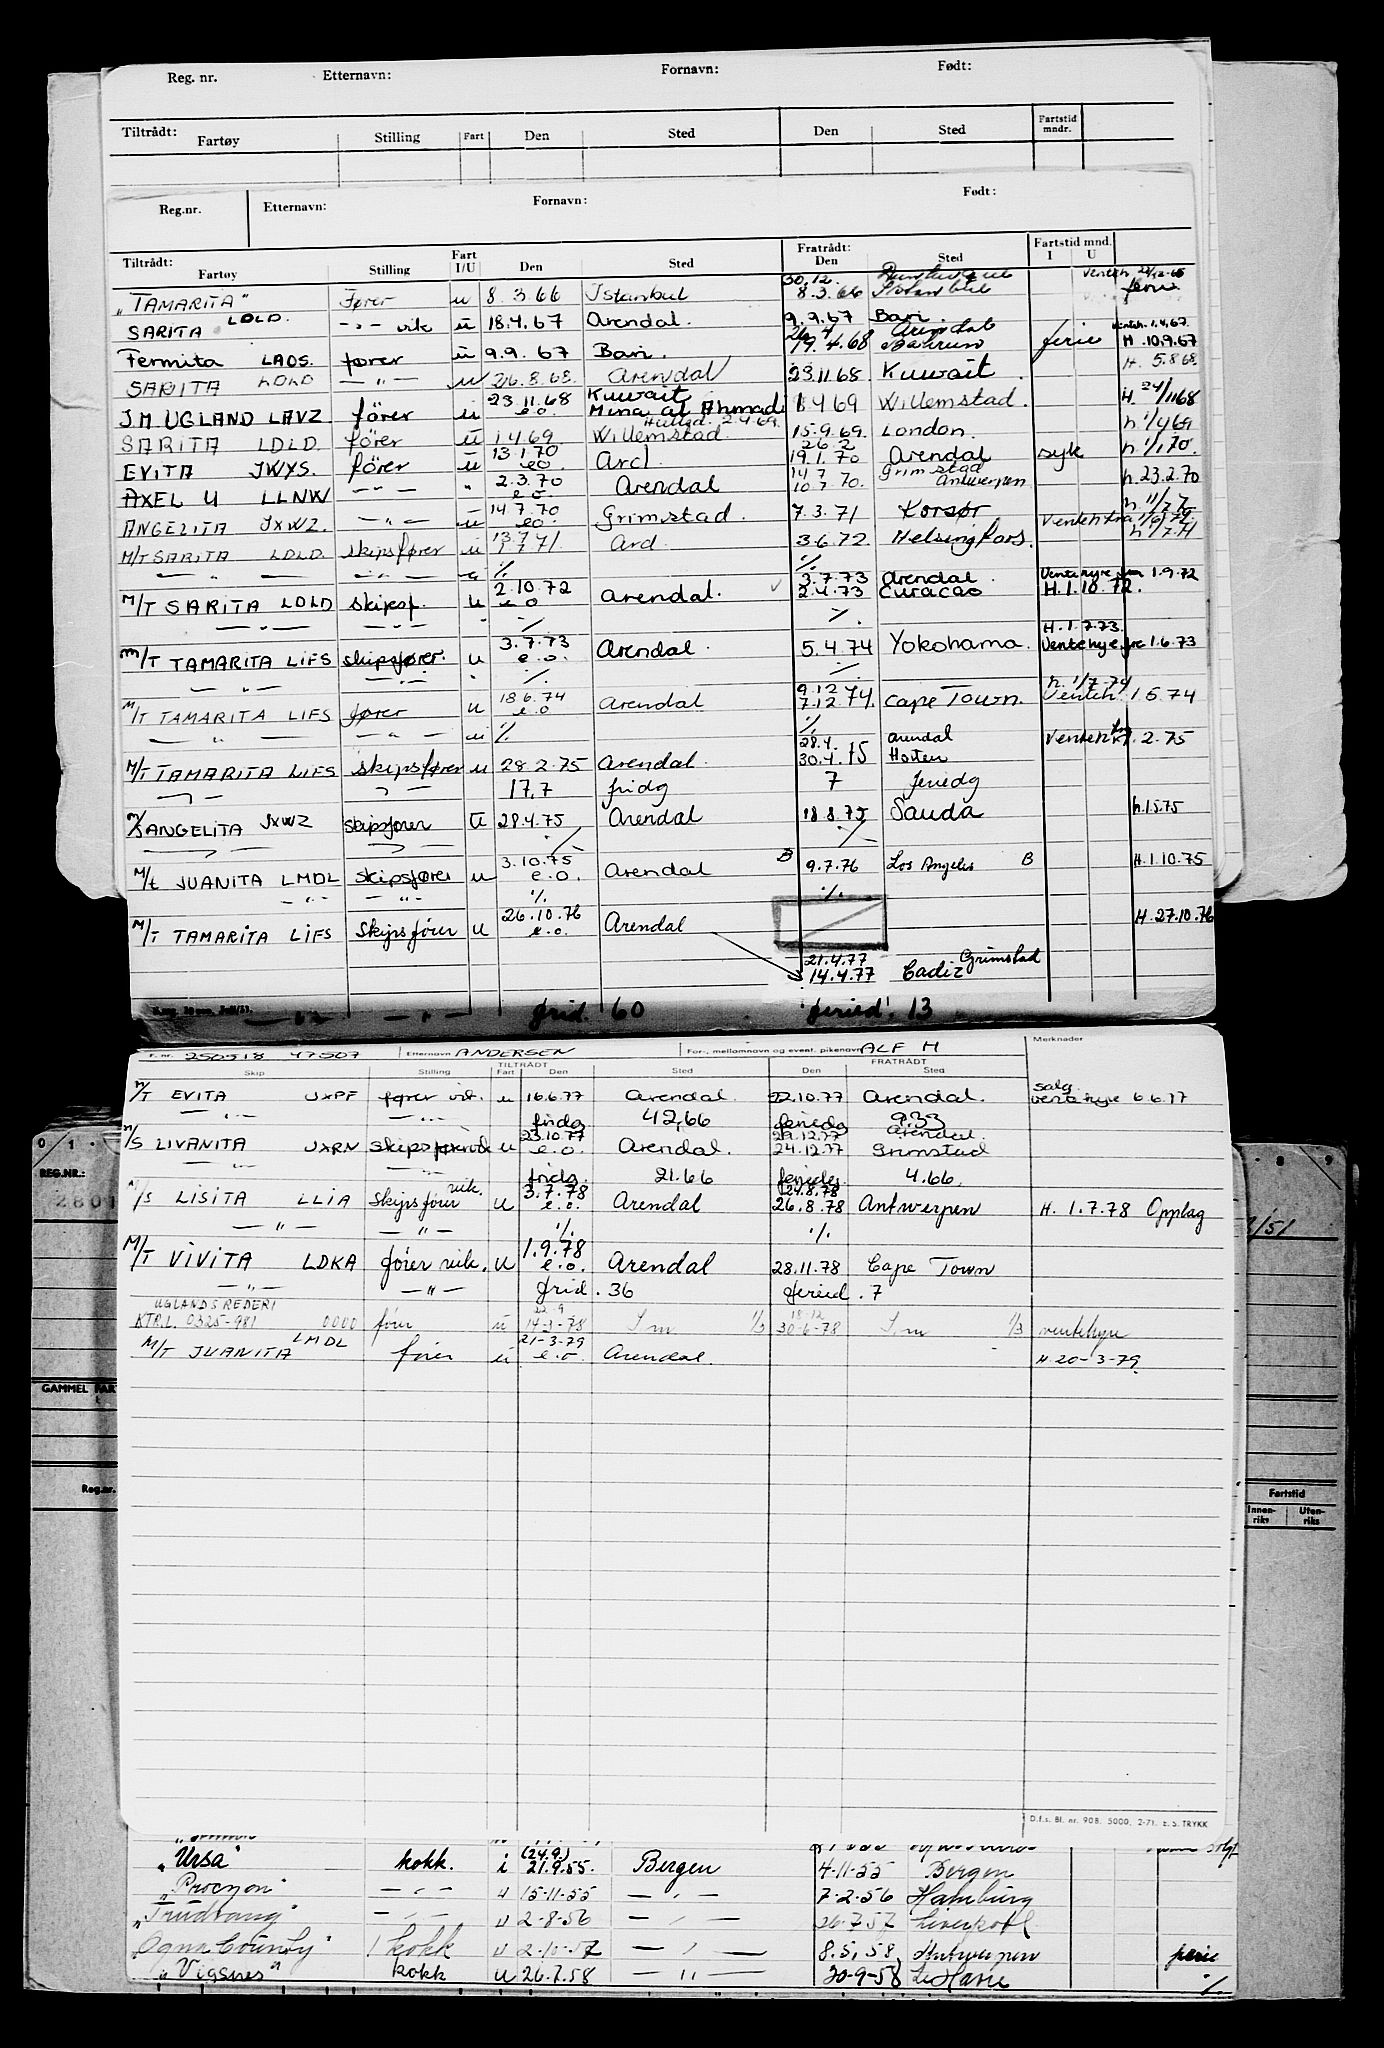 Reg. nr. Etternavn: Fornavn: Født:
Tiltrådt: Fartøy Stilling Fart Den Sted Den Sted Fartstid mndr.
Reg.nr. Etternavn: Fornavn: Født:
Tiltrådt: Fratrådt: Fartstid mnd.
Fartøy Stilling Fart I/U Den Sted Den Sted I U
30.12.
„TAMARITA" Fører u 8.3.66 Istanbul 8.3.66 Istanbul ferie
SARITA LDLD. -"- vik u 18.4.67 Arendal. 9.9.67 Bari.
26.4 Arendal
Fermita LAOS. fører u 9.9.67 Bari. 19.4.68 ferie H. 10.9.67
SARITA LDLD -"- u 26.8.68. Arendal 23.11.68. Kuwait H. 5.8.68.
23.11.68 Kuwait
J.M UGLAND LAVZ fører u e.o. Mina al Ahmadi 1.4.69 Willemstad. H. 24/11 68
Hviled. 2.4.69.
SARITA LDLD. fører u 1.4.69. Willemstad. 15.9.69. London. h. 1/4 69
13.1.70 26.2
EVITA JWYS. fører u e.o Ard. 19.1.70 Arendal syk h. 1/1.70.
2.3.70 14.7 Grimstad
AXEL U LLNW -"- " e.o. Arendal 10.7.70. Antwerpen h. 23.2.70
14.7.70 h 11/7.70
ANGELITA JXWZ. -"- u e.o. Grimstad. 7.3.71 Korsør Venteh fra 1/6/71
13.7.71 h 1/7.71
M/T SARITA LDLD. skipsfører u Ard. 3.6.72. Helsingfors.
-"- -"- u % %
2.10.72 3.7.73 Arendal. Ventehyre fra 1.9.72
M/T SARITA LDLD skipsf. u e.o Arendal. 2.4.73 Curacao H. 1.10.72.
-"- " % %
3.7.73 H. 1.7.73.
M/T TAMARITA LIFS skipsfører. u e.o. Arendal. 5.4.74 Yokohama. Ventehyre fra 1.6.73
-"- " % %
18.6.74 9.12.74 h. 1/7.74
M/T TAMARITA LIFS fører u e.o Arendal 7.12.74. Cape Town. Venteh. 1.5.74
-"- -"- u % %
28.4. Arendal Venteh fra 1.2.75
M/T TAMARITA LIFS skipsfører u 28.2.75 Arendal. 30.4.75 Horten
-"- -"- 17,7 fridg 7 feriedg
M/S ANGELITA JXWZ skipsfører U 28.4.75 Arendal 18.8.75 Sauda h.1.5.75
-"- -"- % %
3.10.75 B
M/t JUANITA LMDL skipsfører u e.o. Arendal 9.7.76 Los Angeles B H.1.10.75
-"- -"- % %
26.10.76
M/T TAMARITA LIFS Skipsfører u e.o. Arendal H. 27.10.76
21.4.77 Grimstad
14.4.77 Cadiz
-"- -"- frid. 60 feried. 13
F. nr. 250518 47507 Etternavn ANDERSEN For-, mellomnavn og event. pikenavn ALF M Merknader
TILTRÅDT FRATRÅDT
Skip Stilling Fart Den Sted Den Sted
M/T EVITA JXPF fører vik. u 16.6.77 Arendal. 22.10.77 Arendal. salg ventehyre 6.6.77
-"- -"- fridg 42,66 feriedg 9.33
23.10.77 29.12.77 Arendal.
M/S LIVANITA JXRN skipsfører vik u e.o. Arendal. 24.12.77 Grimstad
-"- -"- fridg. 21.66 feriedg 4.66.
vik. 3.7.78 24.8.78
M/S LISITA LLIA Skipsfører u e.o. Arendal 26.8.78 Antwerpen H. 1.7.78 Opplag
-"- -"- % %
1.9.78
M/T VIVITA LDKA fører vik. u e.o. Arendal 28.11.78 Cape Town
-"- -"- frid. 36 feried. 7
UGLANDS REDERI 22-9 18-12
KTR.L. 0325-981 0000 fører u 14-3-78 Sm 1/3 30-6-78 Sm 1/3 ventehyre
21-3-79
M/T JUANITA LMDL fører u e.o. Arendal. H. 20-3-79.
0 1 8 9
REG.NR.:
GAMMEL FAR
Reg.nr.
Fartstid
Innen-riks Uten-riks
D.f.s. Bl. nr. 90B. 5000. 2-71. E.S. TRYKK
(24.9.)
„Ursa" kokk. i 21.9.55. Bergen 4-11-55 Bergen
„Procyon" -"- u 15-11-55 -"- 7-2-56 Hamburg
„Trudvang" -"- u 2-8-56 -"- 26.7.57 Liverpool
Ogna County" 1 kokk u 2-10-57 -"- 8.5.58, Antwerpen ferie
„Vigsnes" kokk u 26.7.58 -"- 20-9-58 Le Havre %